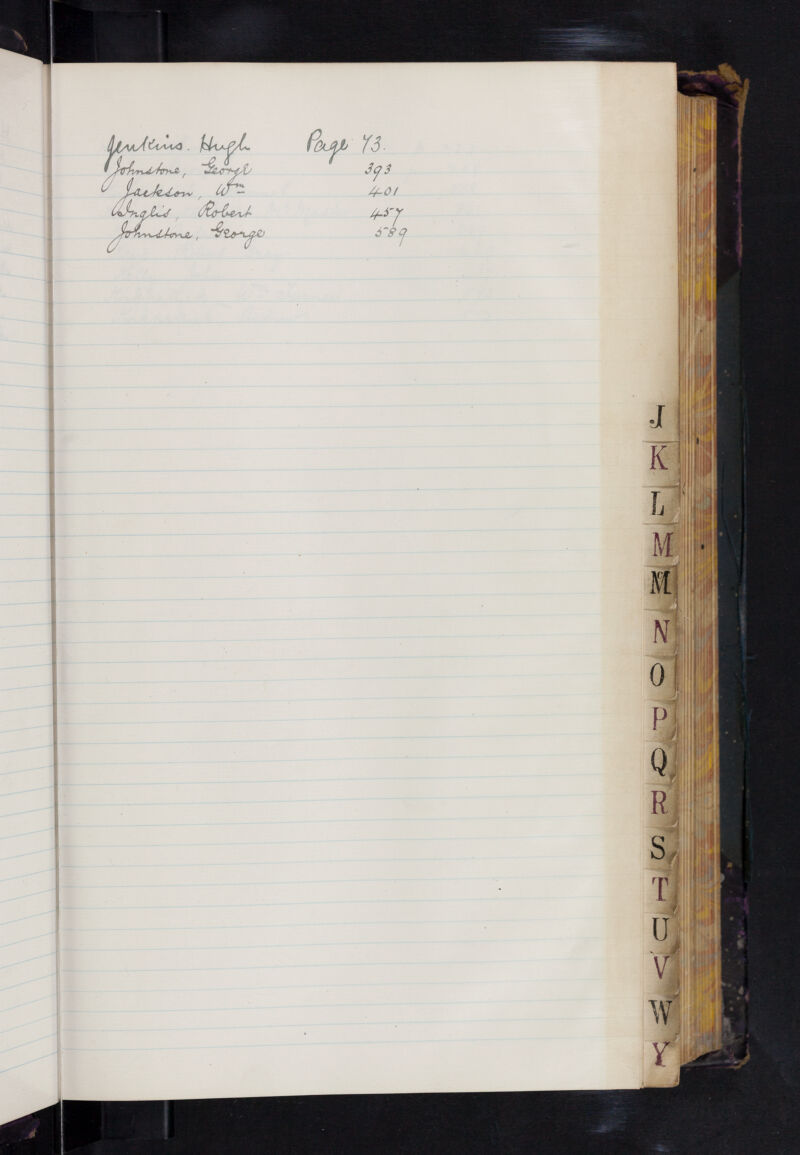 Jenkins. Hugh Page 73.
Johnstone, George 393
Jackson, Wm 401
Inglis, Robert 457
Johnstone, George 589
J
K
L
M
Mc
N
O
P
Q
R
S
T
U
V
W
Y